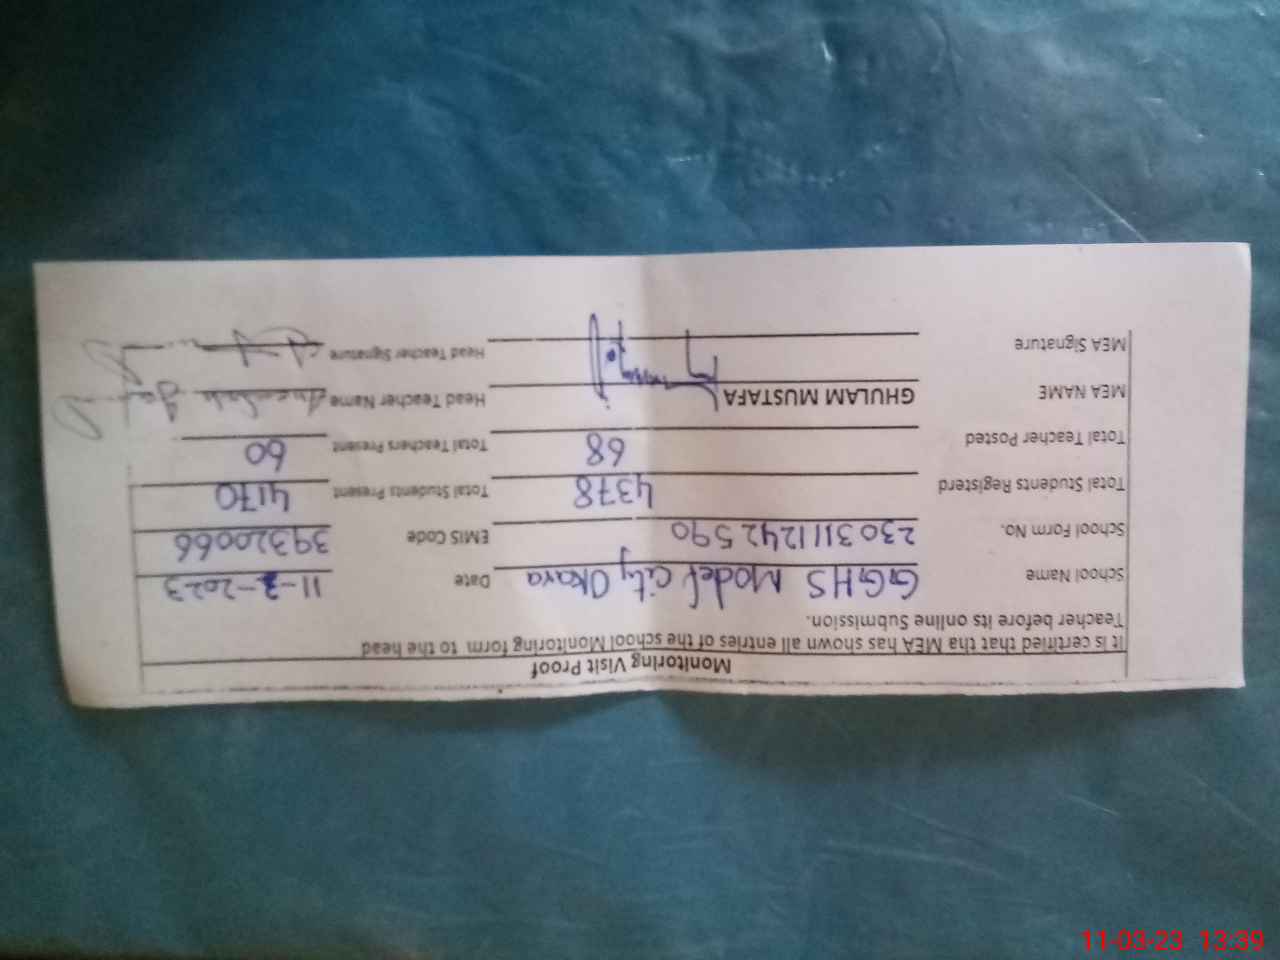 Monitoring Visit Proof
It is certified that tha MEA has shown all entries of the school Monitoring form to the head
Teacher before its online Submission.
School Name GGHS Model City Okara Date 11-3-2023
School Form No. 2303111242590 EMIS Code 39320066
Total Students Registerd 4378 Total Students Present 4170
Total Teacher Posted 68 Total Teachers Present 60
MEA NAME GHULAM MUSTAFA Head Teacher Name
MEA Signature Head Teacher Signature
11-03-23 13:39